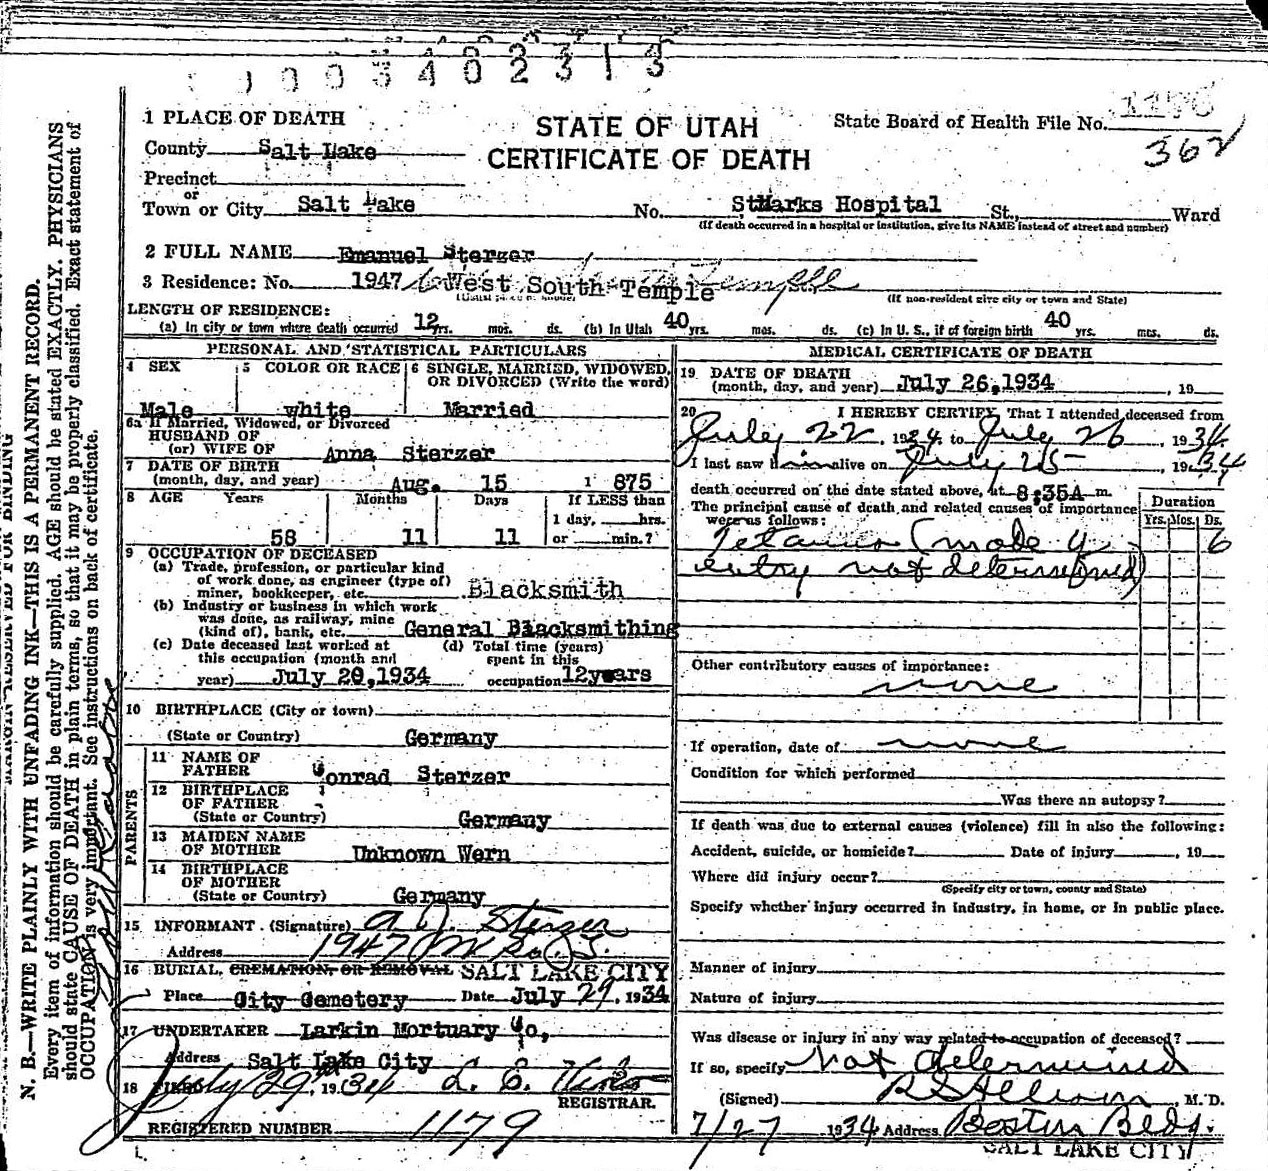 0003402313
1 PLACE OF DEATH
STATE OF UTAH
CERTIFICATE OF DEATH
State Board of Health File No. 1176
362
County Salt Lake
Precinct
or
Town or City Salt Lake No. StMarks Hospital St., Ward
(If death occurred in a hospital or institution, give its NAME instead of street and number)
2 FULL NAME Emanuel Sterzer
3 Residence: No. 1947 West South Temple
(Usual place of abode) (If non-resident give city or town and State)
LENGTH OF RESIDENCE:
(a) In city or town where death occurred 12 yrs. mos. ds. (b) In Utah 40 yrs. mos. ds. (c) In U. S., if of foreign birth 40 yrs. mos. ds.
PERSONAL AND STATISTICAL PARTICULARS
4 SEX 5 COLOR OR RACE 6 SINGLE, MARRIED, WIDOWED, OR DIVORCED (Write the word)
Male white Married
6a If Married, Widowed, or Divorced
HUSBAND OF
(or) WIFE OF Anna Sterzer
7 DATE OF BIRTH
(month, day, and year) Aug. 15 1 875
8 AGE Years Months Days If LESS than
1 day, hrs.
58 11 11 or min.?
9 OCCUPATION OF DECEASED
(a) Trade, profession, or particular kind
of work done, as engineer (type of)
miner, bookkeeper, etc. Blacksmith
(b) Industry or business in which work
was done, as railway, mine
(kind of), bank, etc. General Blacksmithing
(c) Date deceased last worked at
this occupation (month and
year) July 20,1934
(d) Total time (years)
spent in this
occupation 12years
10 BIRTHPLACE (City or town)
(State or Country) Germany
PARENTS
11 NAME OF
FATHER Conrad Sterzer
12 BIRTHPLACE
OF FATHER
(State or Country) Germany
13 MAIDEN NAME
OF MOTHER Unknown Wern
14 BIRTHPLACE
OF MOTHER
(State or Country) Germany
15 INFORMANT (Signature) A J. Sterzer
Address 1947 W So. T.
16 BURIAL, CREMATION, OR REMOVAL SALT LAKE CITY
Place City Cemetery Date July 29, 1934
17 UNDERTAKER Larkin Mortuary Co,
Address Salt Lake City
18 FILED July 29 1934 L. E.
REGISTRAR.
REGISTERED NUMBER 1179
MEDICAL CERTIFICATE OF DEATH
19 DATE OF DEATH
(month, day, and year) July 26,1934 , 19
20 I HEREBY CERTIFY, That I attended deceased from
July 22, 1934 to July 26, 1934.
I last saw him alive on July 25, 1934
death occurred on the date stated above, at 8:35A m.
The principal cause of death and related causes of importance
were as follows:
Duration
Yrs. Mos. Ds.
Tetanus (mode of 6
entry not determined)
Other contributory causes of importance:
none
If operation, date of none
Condition for which performed
Was there an autopsy?
If death was due to external causes (violence) fill in also the following:
Accident, suicide, or homicide? Date of injury , 19
Where did injury occur?
(Specify city or town, county and State)
Specify whether injury occurred in industry, in home, or in public place.
Manner of injury
Nature of injury
Was disease or injury in any way related to occupation of deceased?
If so, specify Not determined
(Signed) , M. D.
7/27 1934 Address Boston Bldg.
SALT LAKE CITY
MARGIN RESERVED FOR BINDING
N. B.—WRITE PLAINLY WITH UNFADING INK—THIS IS A PERMANENT RECORD.
Every item of information should be carefully supplied. AGE should be stated EXACTLY. PHYSICIANS
should state CAUSE OF DEATH in plain terms, so that it may be properly classified. Exact statement of
OCCUPATION is very important. See instructions on back of certificate.